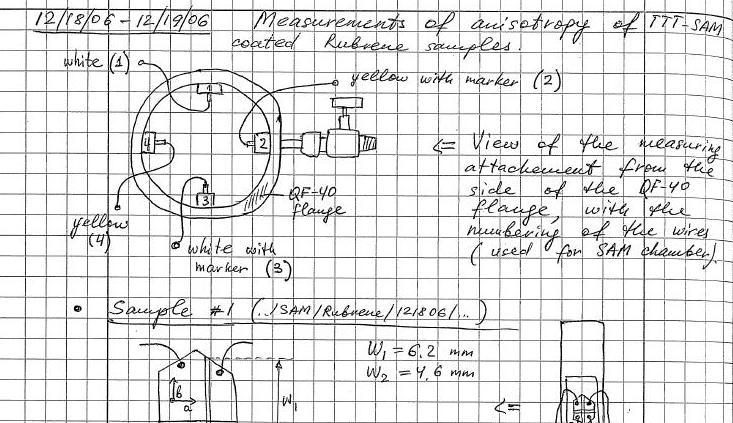 12/18/06 – 12/19/06 Measurements of anisotropy of TTT-SAM
coated Rubrene samples.
white (1)
yellow with marker (2)
1
4
2
3
QF-40
flange
yellow
(4)
white with
marker (3)
<= View of the measuring
attachement from the
side of the QF-40
flange, with the
numbering of the wires
(used for SAM chamber).
• Sample #1 (../SAM/Rubrene/121806/...)
W₁ = 6.2 mm
W₂ = 4.6 mm
b
a
W₁
<=